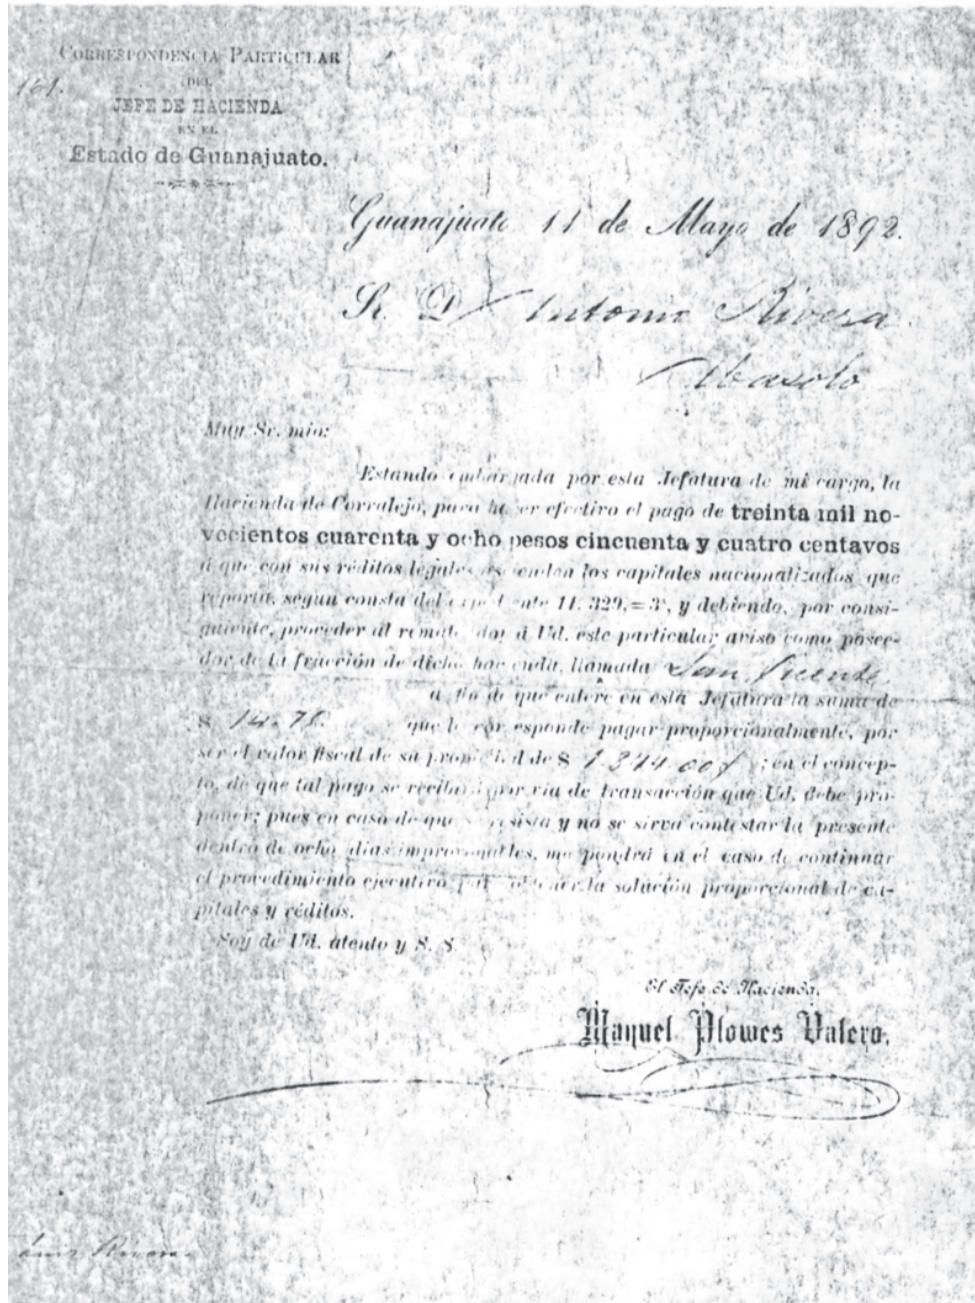 CORRESPONDENCIA PARTICULAR
DEL
161.
JEFE DE HACIENDA
EN EL
Estado de Guanajuato.
Guanajuato 11 de Mayo de 1892.
Sr. D. Antonio Rivera
Abasolo
Muy Sr. mio:
Estando embargada por esta Jefatura de mi cargo, la
Hacienda de Corralejo, para hacer efectivo el pago de treinta mil no-
vecientos cuarenta y ocho pesos cincuenta y cuatro centavos
á que con sus réditos legales ascienden los capitales nacionalizados que
reporta, segun consta del expediente 11.329,=3ª, y debiendo, por consi-
guiente, proceder al remate doy á Ud. este particular aviso como posee-
dor de la fracción de dicha hacienda, llamada San Vicente
á fin de que entere en esta Jefatura la suma de
$ 14.78. que le corresponde pagar proporcionalmente, por
ser el valor fiscal de su propiedad de $ 1.344.00 ; en el concep-
to, de que tal pago se recibirá por via de transacción que Ud. debe pro-
poner; pues en caso de que se resista y no se sirva contestar la presente
dentro de ocho dias improrrogables, me pondrá en el caso de continuar
el procedimiento ejecutivo para obtener la solución proporcional de ca-
pitales y réditos.
Soy de Ud. atento y S. S.
El Jefe de Hacienda,
Manuel Plowes Valero.